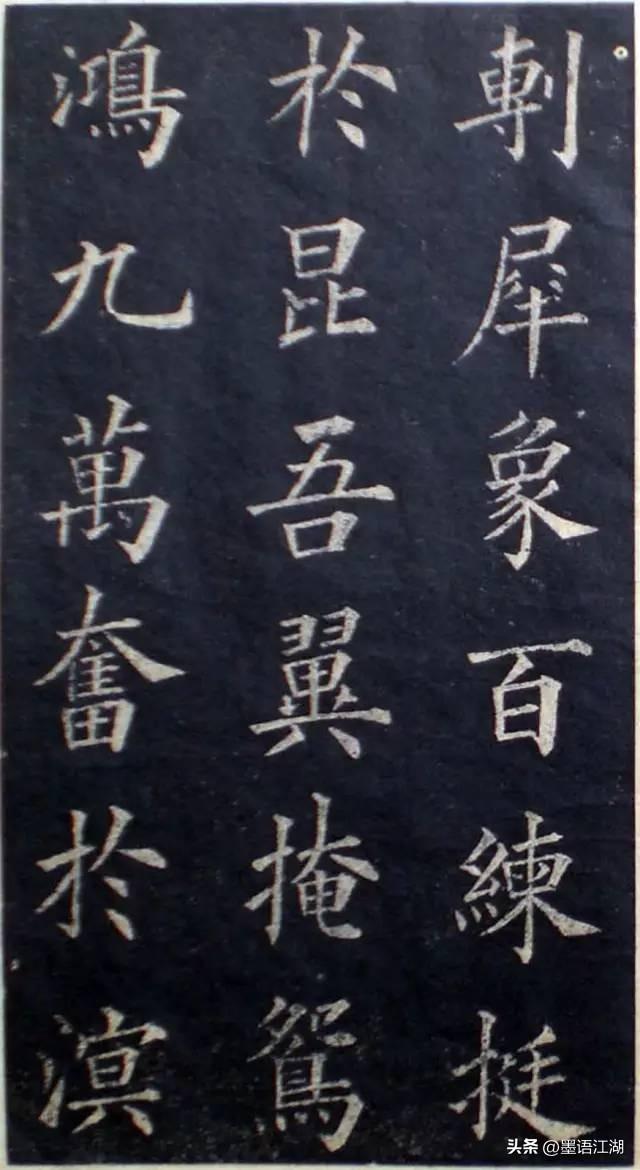 剸犀象百練挺
於昆吾翼掩鴛
鴻九萬奮於溟
头条 @墨语江湖